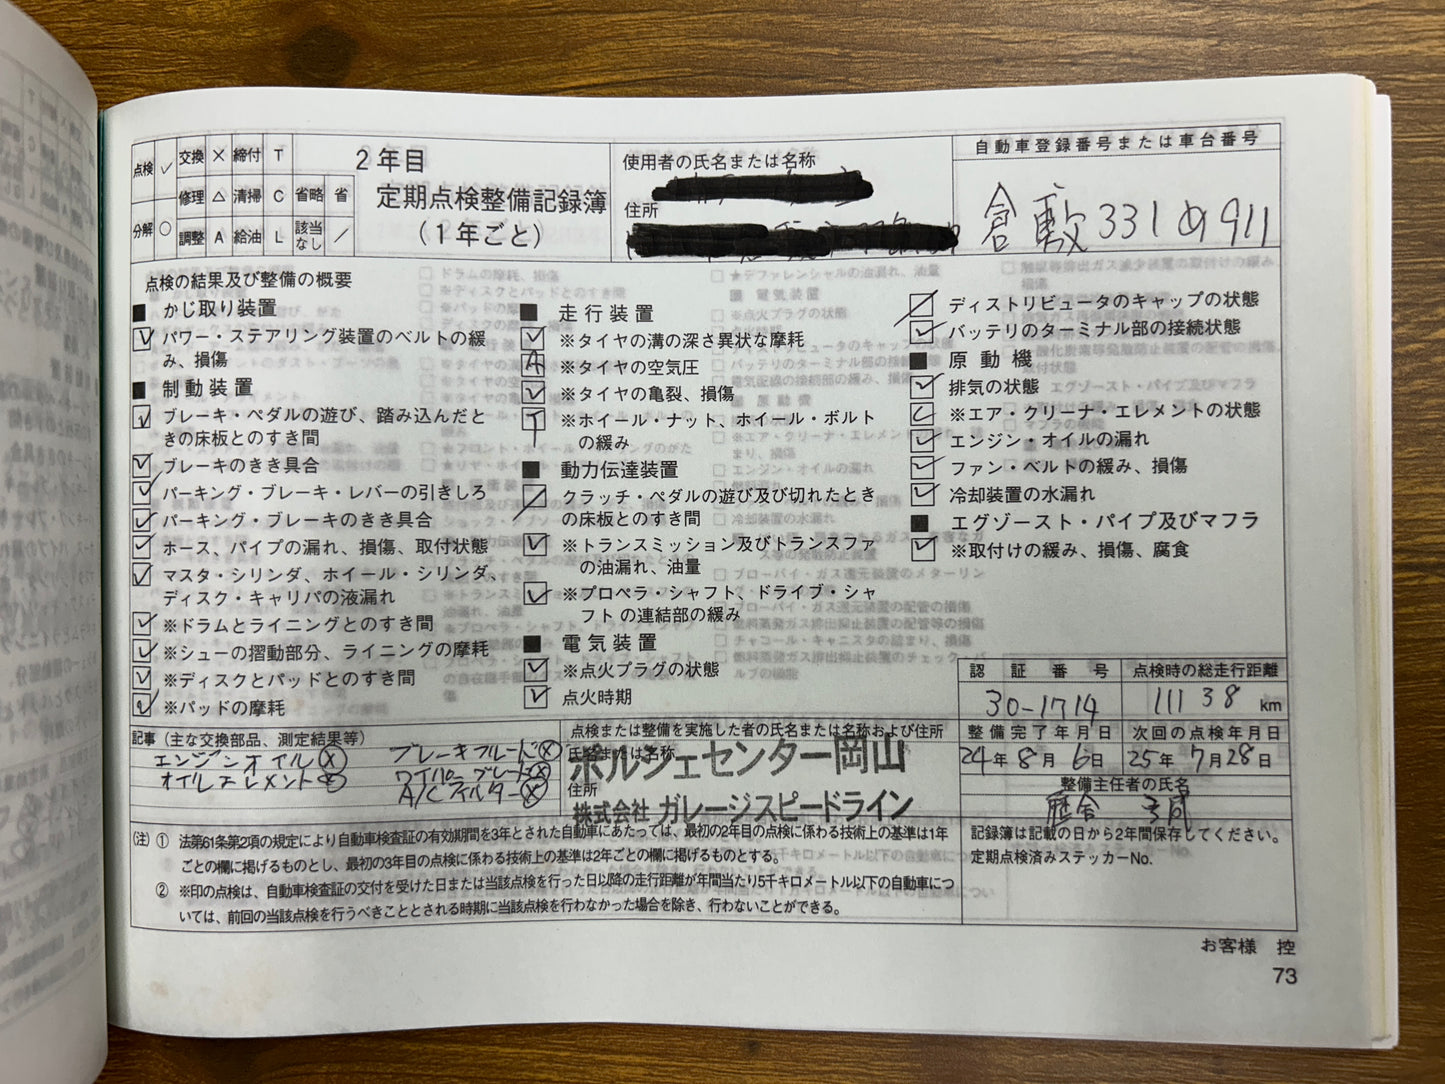 点検 ✓ 交換 × 締付 T
修理 △ 清掃 C 省略 省
分解 ○ 調整 A 給油 L 該当なし ／
2年目
定期点検整備記録簿
(1年ごと)
使用者の氏名または名称
住所
自動車登録番号または車台番号
倉敷331め911
点検の結果及び整備の概要
■ かじ取り装置
✓ パワー・ステアリング装置のベルトの緩
み、損傷
■ 制動装置
✓ ブレーキ・ペダルの遊び、踏み込んだと
きの床板とのすき間
✓ ブレーキのきき具合
✓ パーキング・ブレーキ・レバーの引きしろ
✓ パーキング・ブレーキのきき具合
✓ ホース、パイプの漏れ、損傷、取付状態
✓ マスタ・シリンダ、ホイール・シリンダ、
ディスク・キャリパの液漏れ
✓ ※ドラムとライニングとのすき間
✓ ※シューの摺動部分、ライニングの摩耗
✓ ※ディスクとパッドとのすき間
✓ ※パッドの摩耗
■ 走行装置
✓ ※タイヤの溝の深さ異状な摩耗
A ※タイヤの空気圧
✓ ※タイヤの亀裂、損傷
T ※ホイール・ナット、ホイール・ボルト
の緩み
■ 動力伝達装置
／ クラッチ・ペダルの遊び及び切れたとき
の床板とのすき間
✓ ※トランスミッション及びトランスファ
の油漏れ、油量
✓ ※プロペラ・シャフト、ドライブ・シャ
フトの連結部の緩み
■ 電気装置
✓ ※点火プラグの状態
✓ 点火時期
／ ディストリビュータのキャップの状態
✓ バッテリのターミナル部の接続状態
■ 原動機
✓ 排気の状態
C ※エア・クリーナ・エレメントの状態
✓ エンジン・オイルの漏れ
✓ ファン・ベルトの緩み、損傷
✓ 冷却装置の水漏れ
■ エグゾースト・パイプ及びマフラ
✓ ※取付けの緩み、損傷、腐食
認証番号
30-1714
点検時の総走行距離
11138 km
整備完了年月日
24年8月6日
次回の点検年月日
25年7月28日
整備主任者の氏名
記事(主な交換部品、測定結果等)
エンジンオイル ⊗ ブレーキフルード ⊗
オイルエレメント ⊗ ワイパーブレード ⊗
A/Cフィルター ⊗
点検または整備を実施した者の氏名または名称および住所
氏名または名称
ポルシェセンター岡山
住所
株式会社 ガレージスピードライン
(注) ① 法第61条第2項の規定により自動車検査証の有効期間を3年とされた自動車にあたっては、最初の2年目の点検に係わる技術上の基準は1年
ごとの欄に掲げるものとし、最初の3年目の点検に係わる技術上の基準は2年ごとの欄に掲げるものとする。
② ※印の点検は、自動車検査証の交付を受けた日または当該点検を行った日以降の走行距離が年間当たり5千キロメートル以下の自動車につ
いては、前回の当該点検を行うべきこととされる時期に当該点検を行わなかった場合を除き、行わないことができる。
記録簿は記載の日から2年間保存してください。
定期点検済みステッカーNo.
お客様 控
73